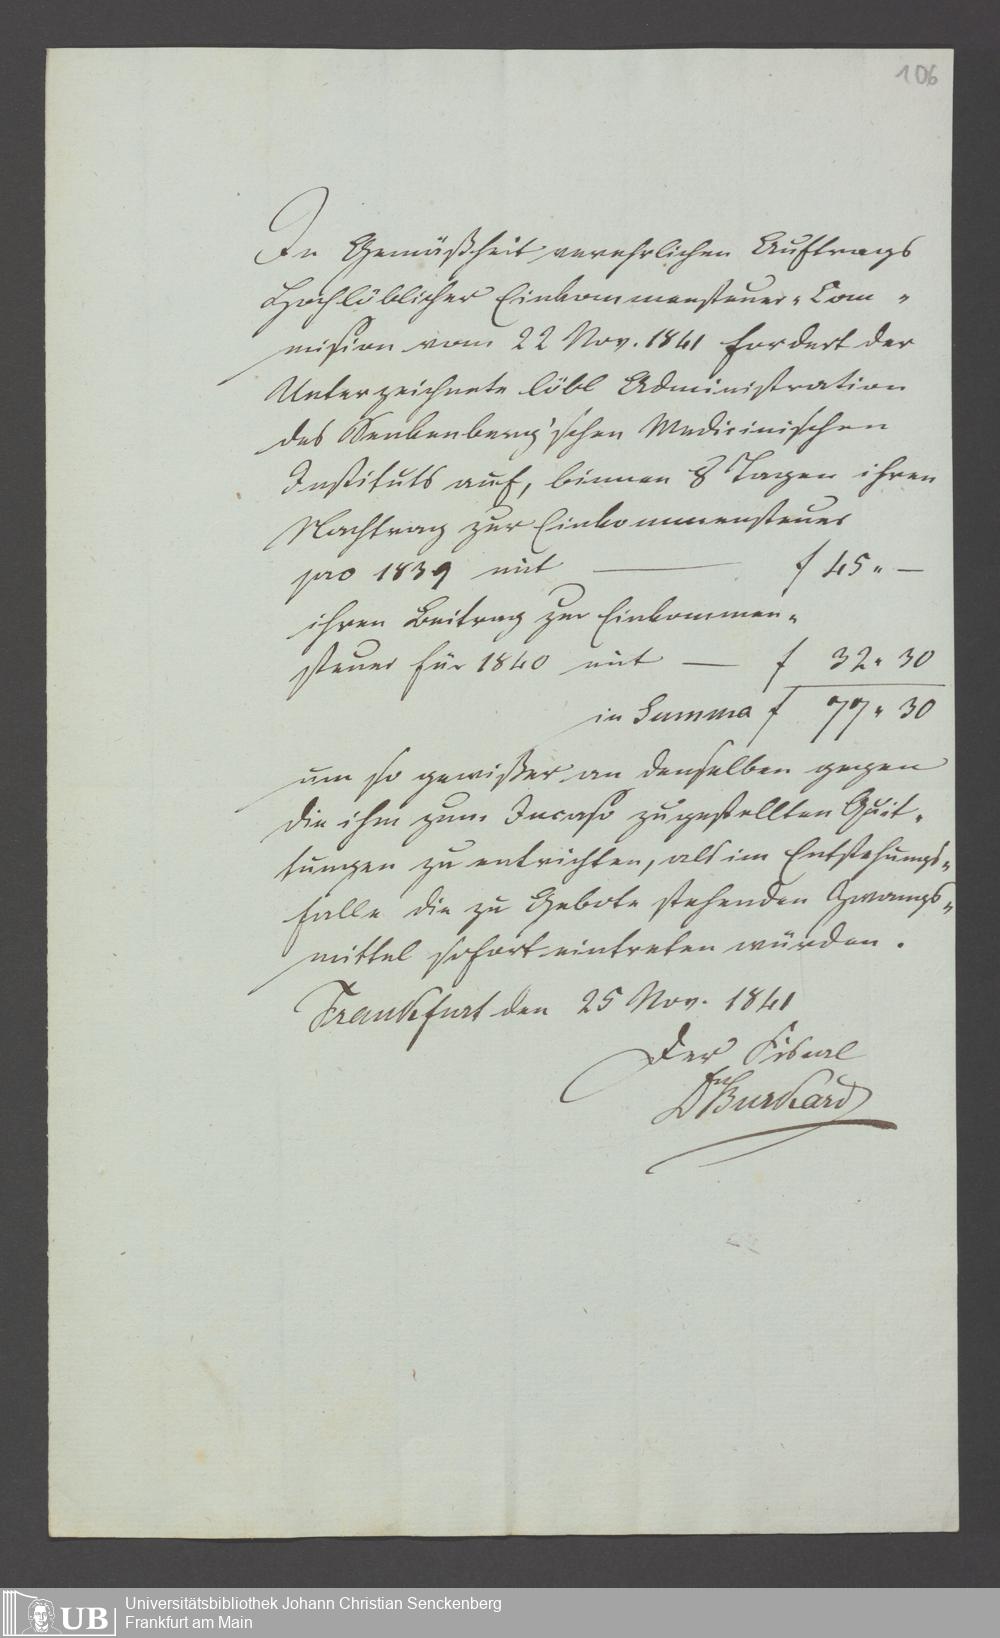 106
In Gemäßheit verehrlichen Auftrags
Hochlöblicher Einkommensteuer-Com-
mission vom 22 Nov. 1841 fordert der
Unterzeichnete löbl Administration
des Senkenberg'schen Medicinischen
Instituts auf, binnen 8 Tagen ihren
Nachtrag zur Einkommensteuer
pro 1839 mit — f 45 " —
ihren Beitrag zur Einkommen-
steuer für 1840 mit — f 32 " 30
in Summa f 77 " 30
um so gewißer an denselben gegen
die ihm zum Incasso zugestellten Quit-
tungen zu entrichten, als im Entstehungs-
falle die zu Gebote stehenden Zwangs-
mittel sofort eintreten würden.
Frankfurt den 25 Nov. 1841
Der Fiskal
Dr Burkard
UB
Universitätsbibliothek Johann Christian Senckenberg
Frankfurt am Main